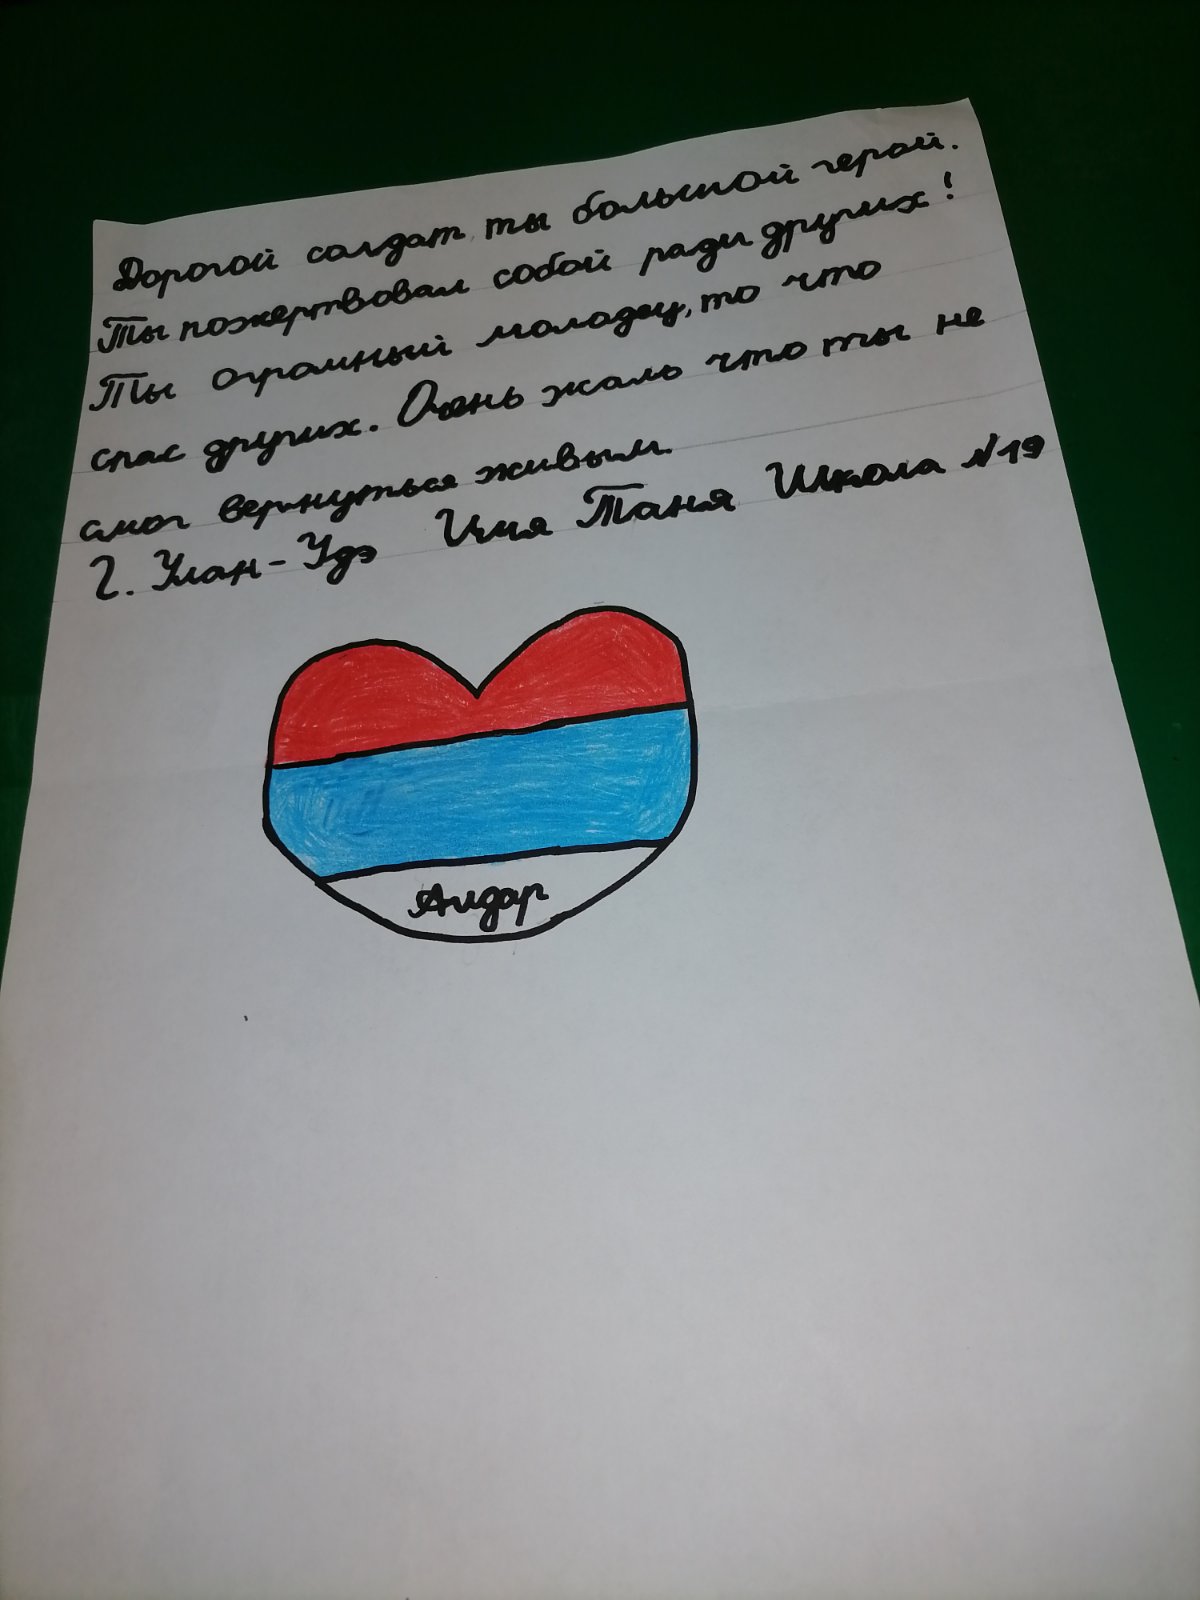 Дорогой солдат, ты большой герой.
Ты пожертвовал собой ради других!
Ты огромный молодец, то что
спас других. Очень жаль что ты не
смог вернуться живым.
Г. Улан-Удэ Имя Таня Школа №19
Алдар